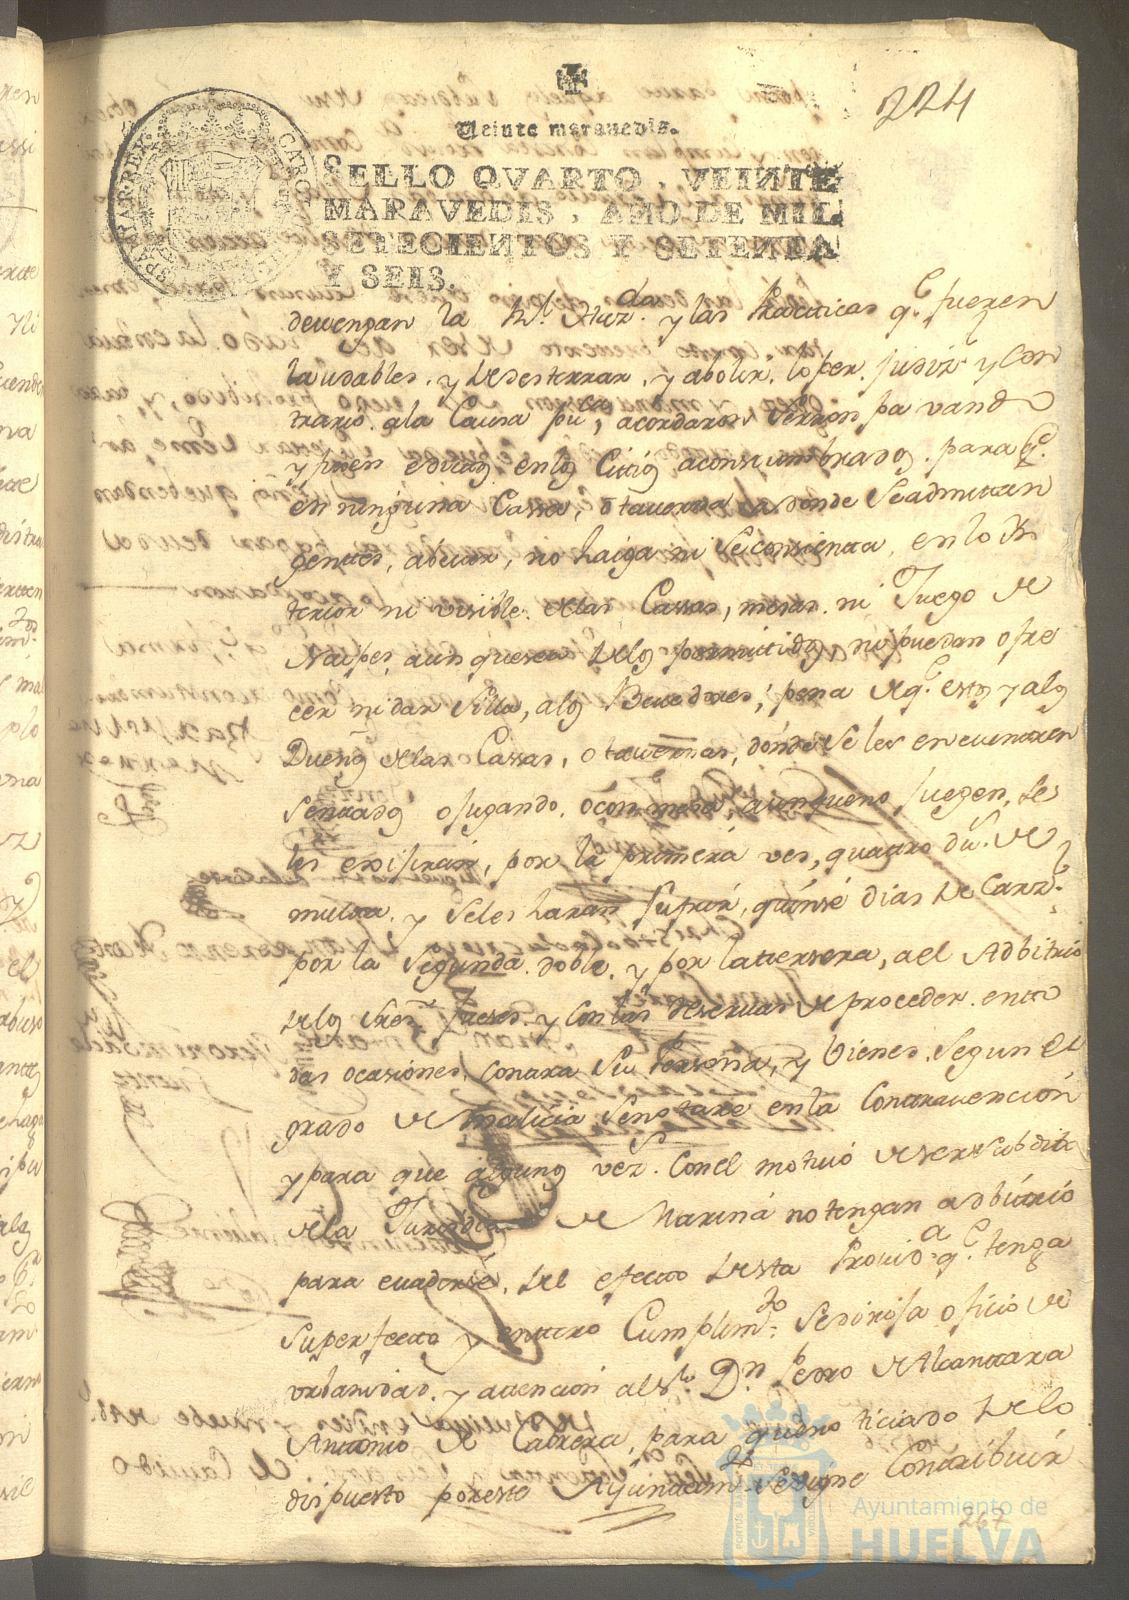 224
Veinte maravedis.
SELLO QVARTO, VEINTE
MARAVEDIS, AÑO DE MIL
SETECIENTOS Y SETENTA
Y SEIS.
devengan la Rl. Hazda. y las Practicas qe. fueren
laudables, y desterrar, y abolir, lo per judizl y con
trario ala Causa puca, acordaron Se
y en los Citios aconstumbrados. para qe.
en ninguna Cassa, o taverna en donde Se admittan
gentes, abever, no haiga ni Se consienta, en lo In
terior ni visible delas Cassas, mesas ni Juego de
Naipes, aun que sea delos permitidos, ni puedan ofre
cer ni dar Silla, alos Bevedores; pena de qe. estos y alos
Dueños delas Cassas, o tavernas, donde Se les encuentren
Sentados o jugando, o con mesa, aunque no jueguen, se
les exijirán, por la primera ves, quatro du.s de
multa, y Seles haran Sufrir, quinse dias de Carzl.
por la Segunda doble, y por la tersera, ael Adbitrio
delos Sres. Jueses, y con las reservas de proceder en to
das ocasiones, contra Su Persona, y bienes, Segun el
grado de malicia Se notare en la Contravención
y para que algunos vezs. Con el motivo de ser Subditos
dela Jurisdicn de Marina no tengan adbitrio
para evadirse, del efecto desta Provida. qe. tenga
Super fecto y entero Cumplimto. Se dirija oficio de
urbanidad, y atención al Sr. Dn. Pedro de Alcantara
Antonio de Cabrera, para que no ticiado delo
dispuesto por este Ayuntam.to Se digne Contribuir
267
Ayuntamiento de
HUELVA